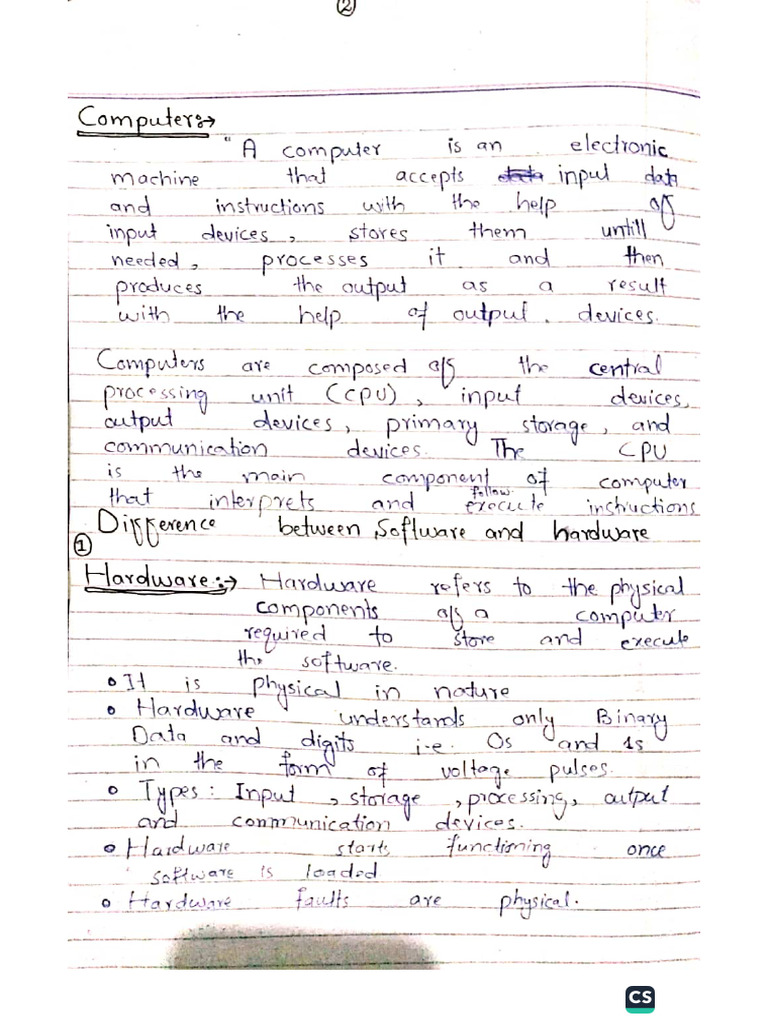 ②
Computer:→
"A computer is an electronic
machine that accepts data input data
and instructions with the help of
input devices, stores them untill
needed, processes it and then
produces the output as a result
with the help of output. devices.
Computers are composed of the central
processing unit (CPU), input devices,
output devices, primary storage, and
communication devices. The CPU
is the main component of computer
that interprets and follow. execute instructions
Difference between Software and hardware
①
Hardware:→ Hardware refers to the physical
components of a computer
required to store and execute
the software.
• It is physical in nature
• Hardware understands only Binary
Data and digits i.e. 0s and 1s
in the form of voltage pulses.
• Types: Input, storage, processing, output
and communication devices.
• Hardware starts functioning once
software is loaded
• Hardware faults are physical.
CS